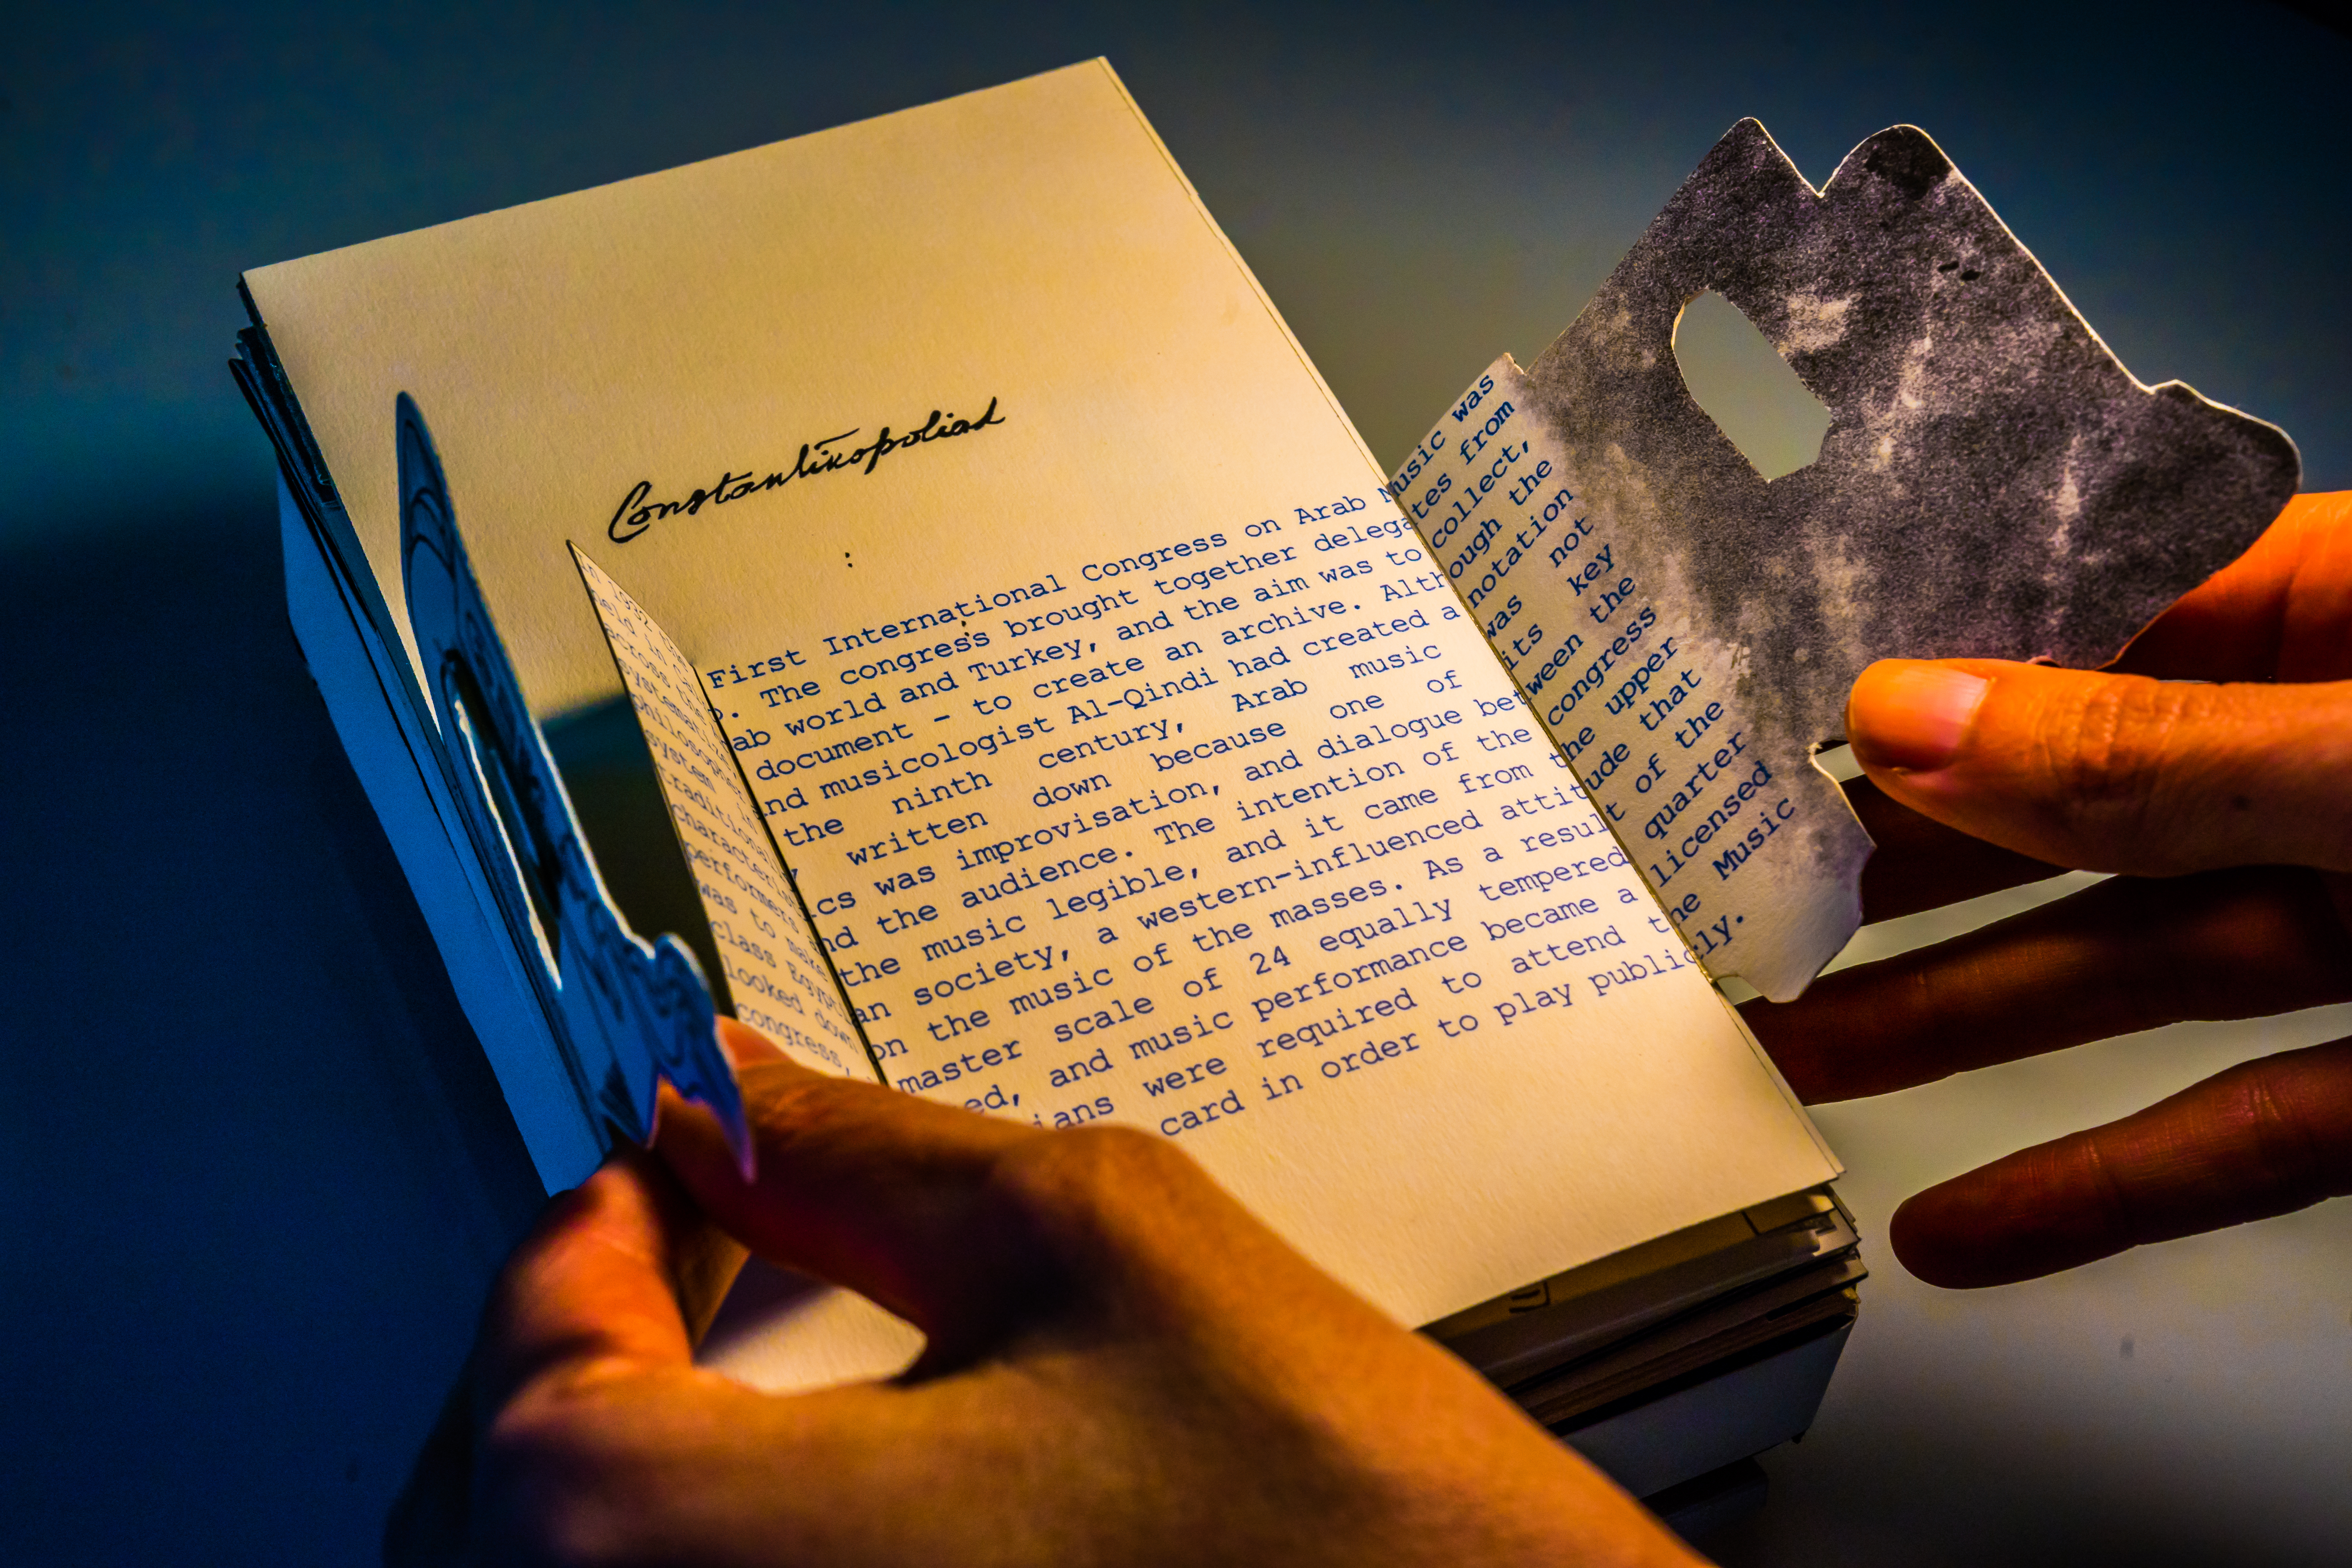 Constantinopoliad
:
In 1932 the First International Congress on Arab Music was
held in Cairo. The congress brought together delegates from
across the Arab world and Turkey, and the aim was to collect,
systematize, document - to create an archive. Although the
philosopher and musicologist Al-Qindi had created a notation
system in the ninth century, Arab music was not
traditionally written down because one of its key
characteristics was improvisation, and dialogue between the
performers and the audience. The intention of the congress
was to make the music legible, and it came from the upper
class Egyptian society, a western-influenced attitude that
looked down on the music of the masses. As a result of the
congress, master scale of 24 equally tempered quarter
ed, and music performance became a licensed
ians were required to attend the Music
card in order to play publicly.